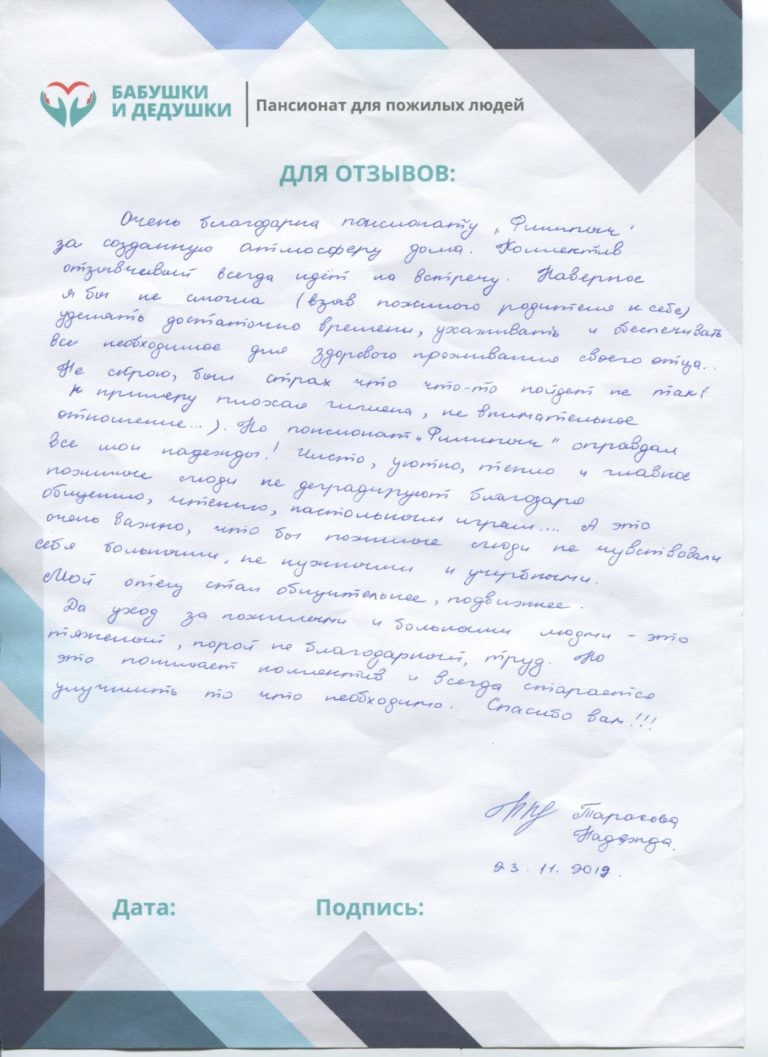 БАБУШКИ
И ДЕДУШКИ
Пансионат для пожилых людей
ДЛЯ ОТЗЫВОВ:
Очень благодарна пансионату „
за созданную атмосферу дома. Коллектив
отзывчивый всегда идёт на встречу. Наверное
я бы не смогла (взяв пожилого родителя к себе)
уделять достаточно времени, ухаживать и обеспечивать
все необходимое для здорового проживания своего отца...
Не скрою, был страх что что-то пойдет не так(
к примеру плохая гигиена, не внимательное
отношение...). Но пансионат „ " оправдал
все мои надежды! Чисто, уютно, тепло и главное
пожилые люди не деградируют благодаря
общению, чтению, настольным играм.... А это
очень важно, что бы пожилые люди не чувствовали
себя больными, не нужными и ущербными.
Мой отец стал общительнее, подвижнее.
Да уход за пожилыми и больными людми - это
тяжелый, порой не благодарный, труд. Но
это понимает коллектив и всегда старается
улучшить то что необходимо. Спасибо вам!!!
Тарасова
Надежда.
23. 11. 2019.
Дата:
Подпись: